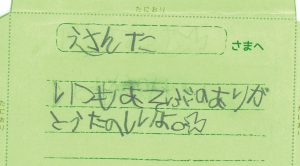 たにおり
えさんた さまへ
いつもあそぶのありが
とうたのしいよ☆